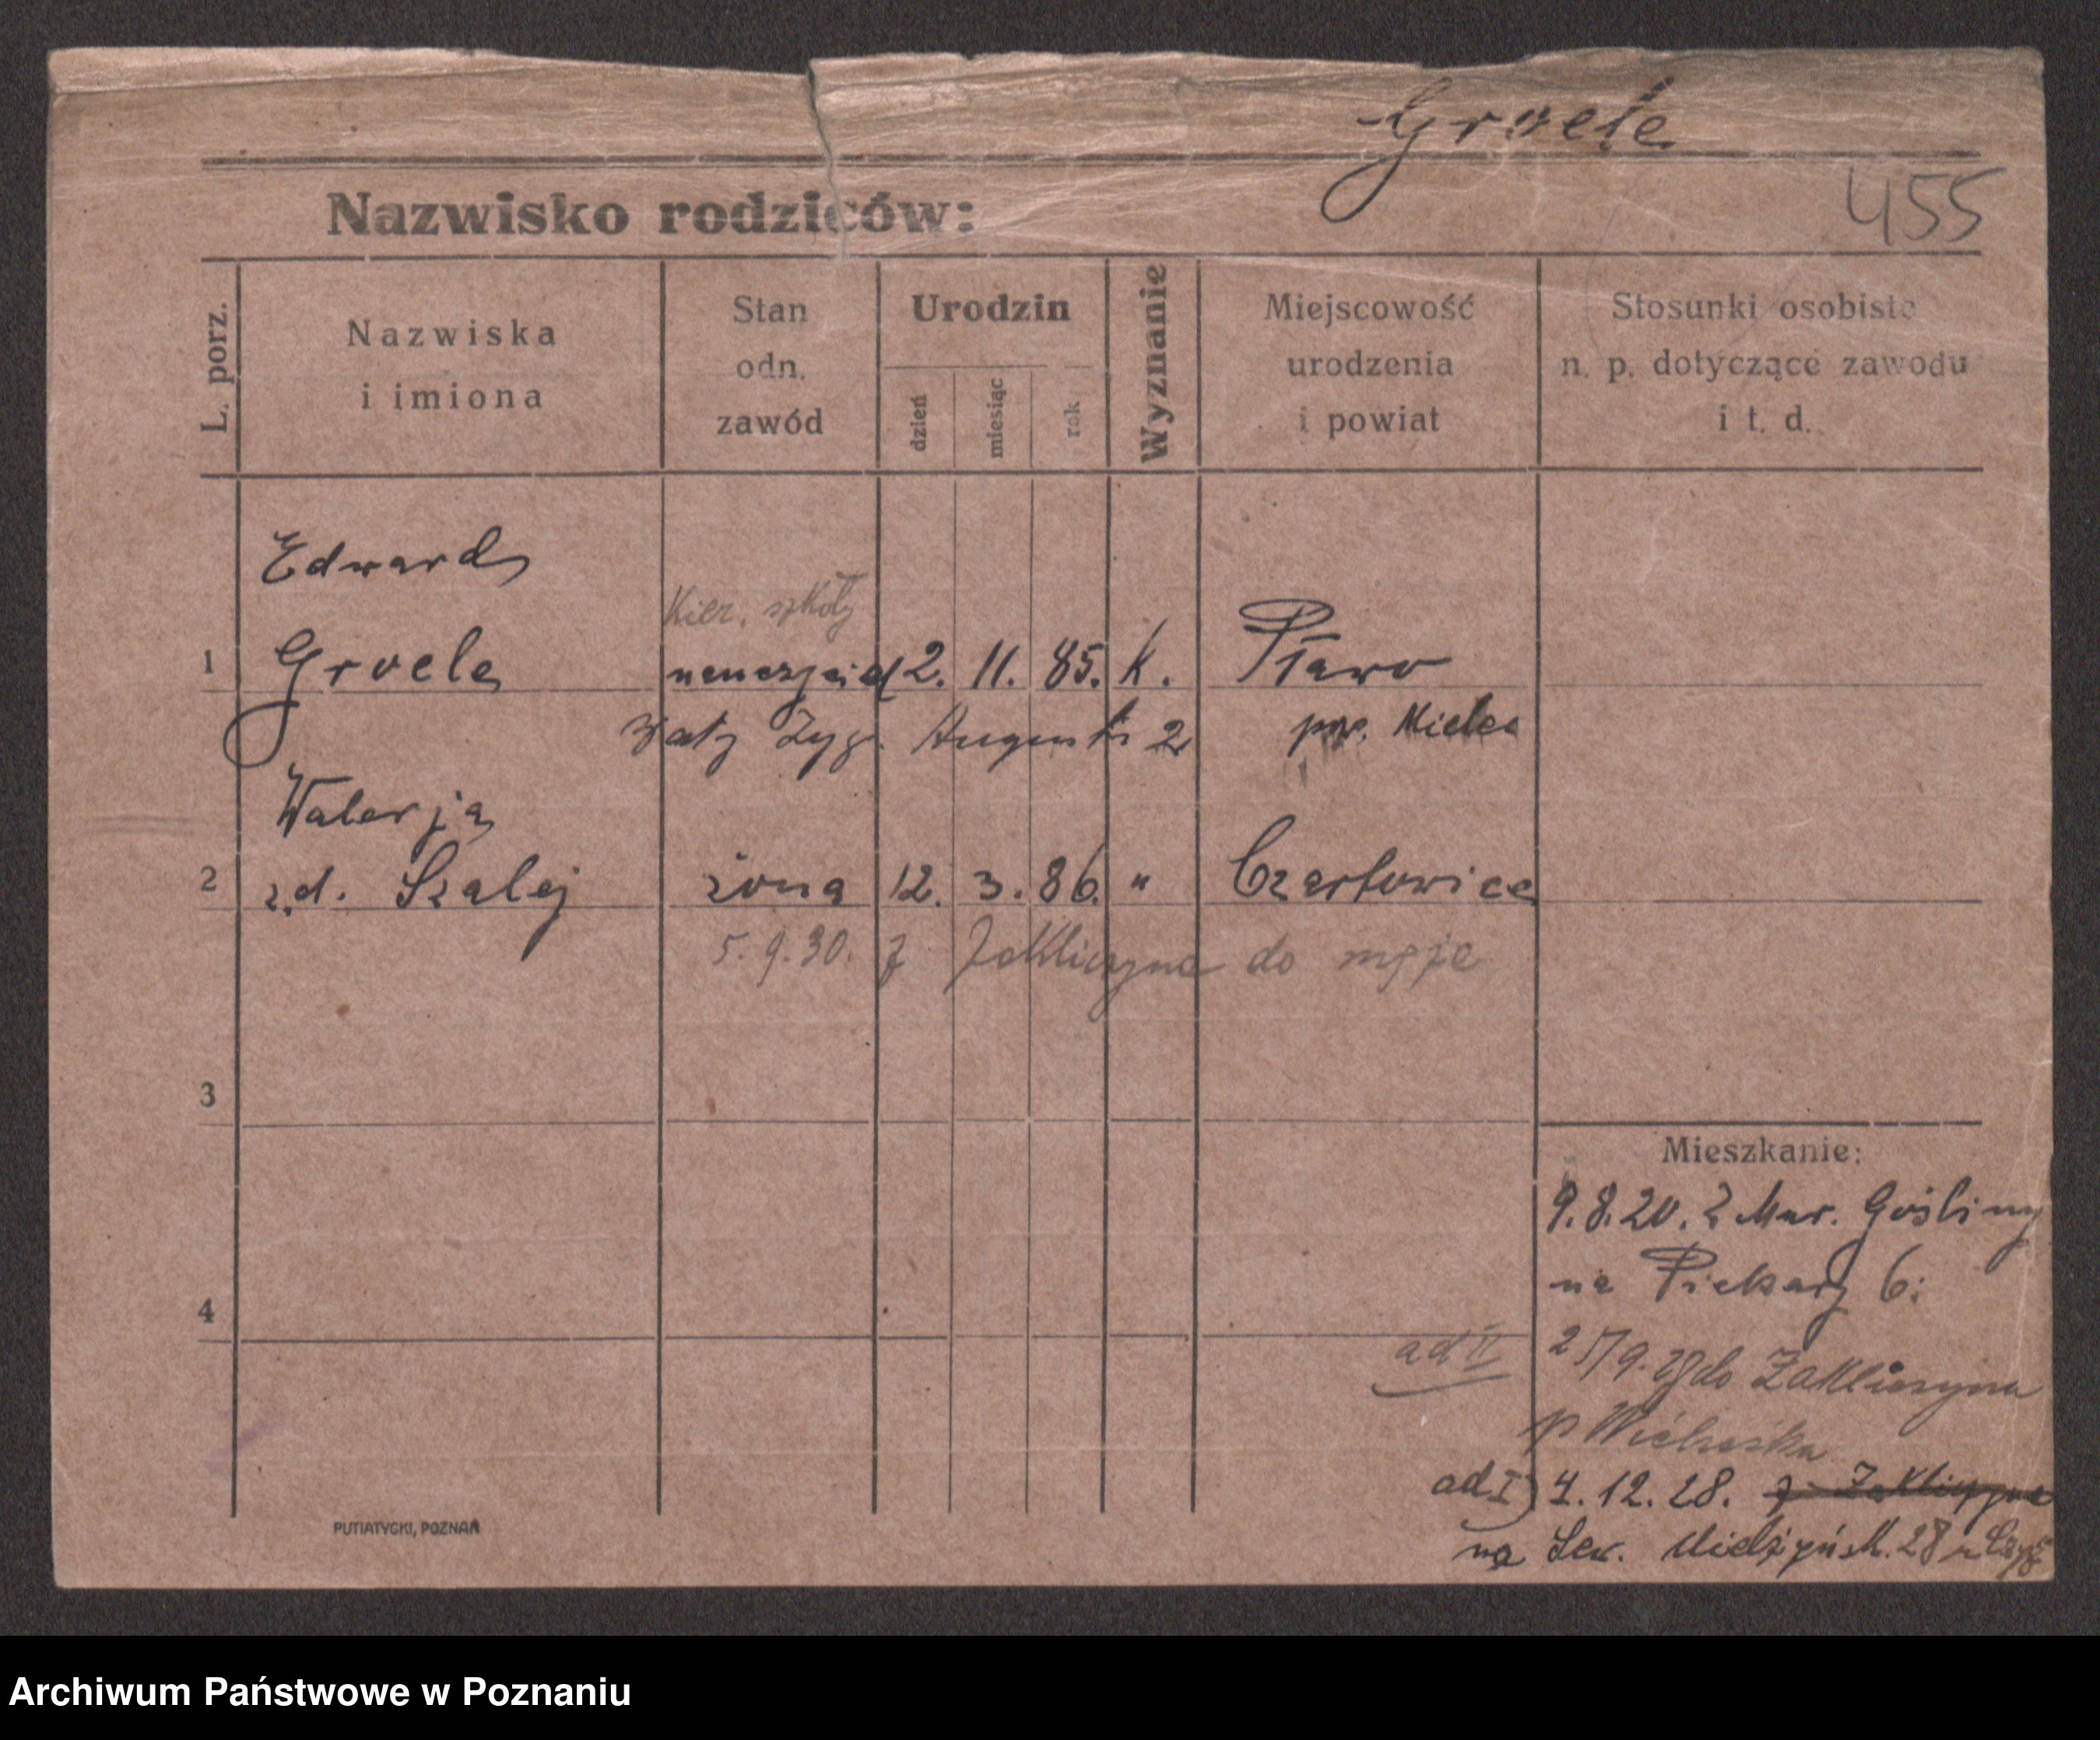 Groele
455
Nazwisko rodziców:
L. porz.
Nazwiska
i imiona
Stan
odn.
zawód
Urodzin
dzień
miesiąc
rok
Wyznanie
Miejscowość
urodzenia
i powiat
Stosunki osobiste
n. p. dotyczące zawodu
i t. d.
Edward
Kier. szkoły
1 Groele 2. 11. 85. K. Pławo
Zyg. Augusta 2 pow. Mielec
Walerja
2 z.d. Szalej żona 12. 3. 86. " Czartowice
5.9.30. z Zakliczyna do męża
3
Mieszkanie:
9.8.20. z Mur. Gośliny
na Piekary 6.
4
ad II 25/9. do Zakliczyna
p Wieliczka
ad I) 4.12.28. z Zakliczyna
na Sew. Mielżyńsk. 28
PUTIATYCKI, POZNAŃ
Archiwum Państwowe w Poznaniu